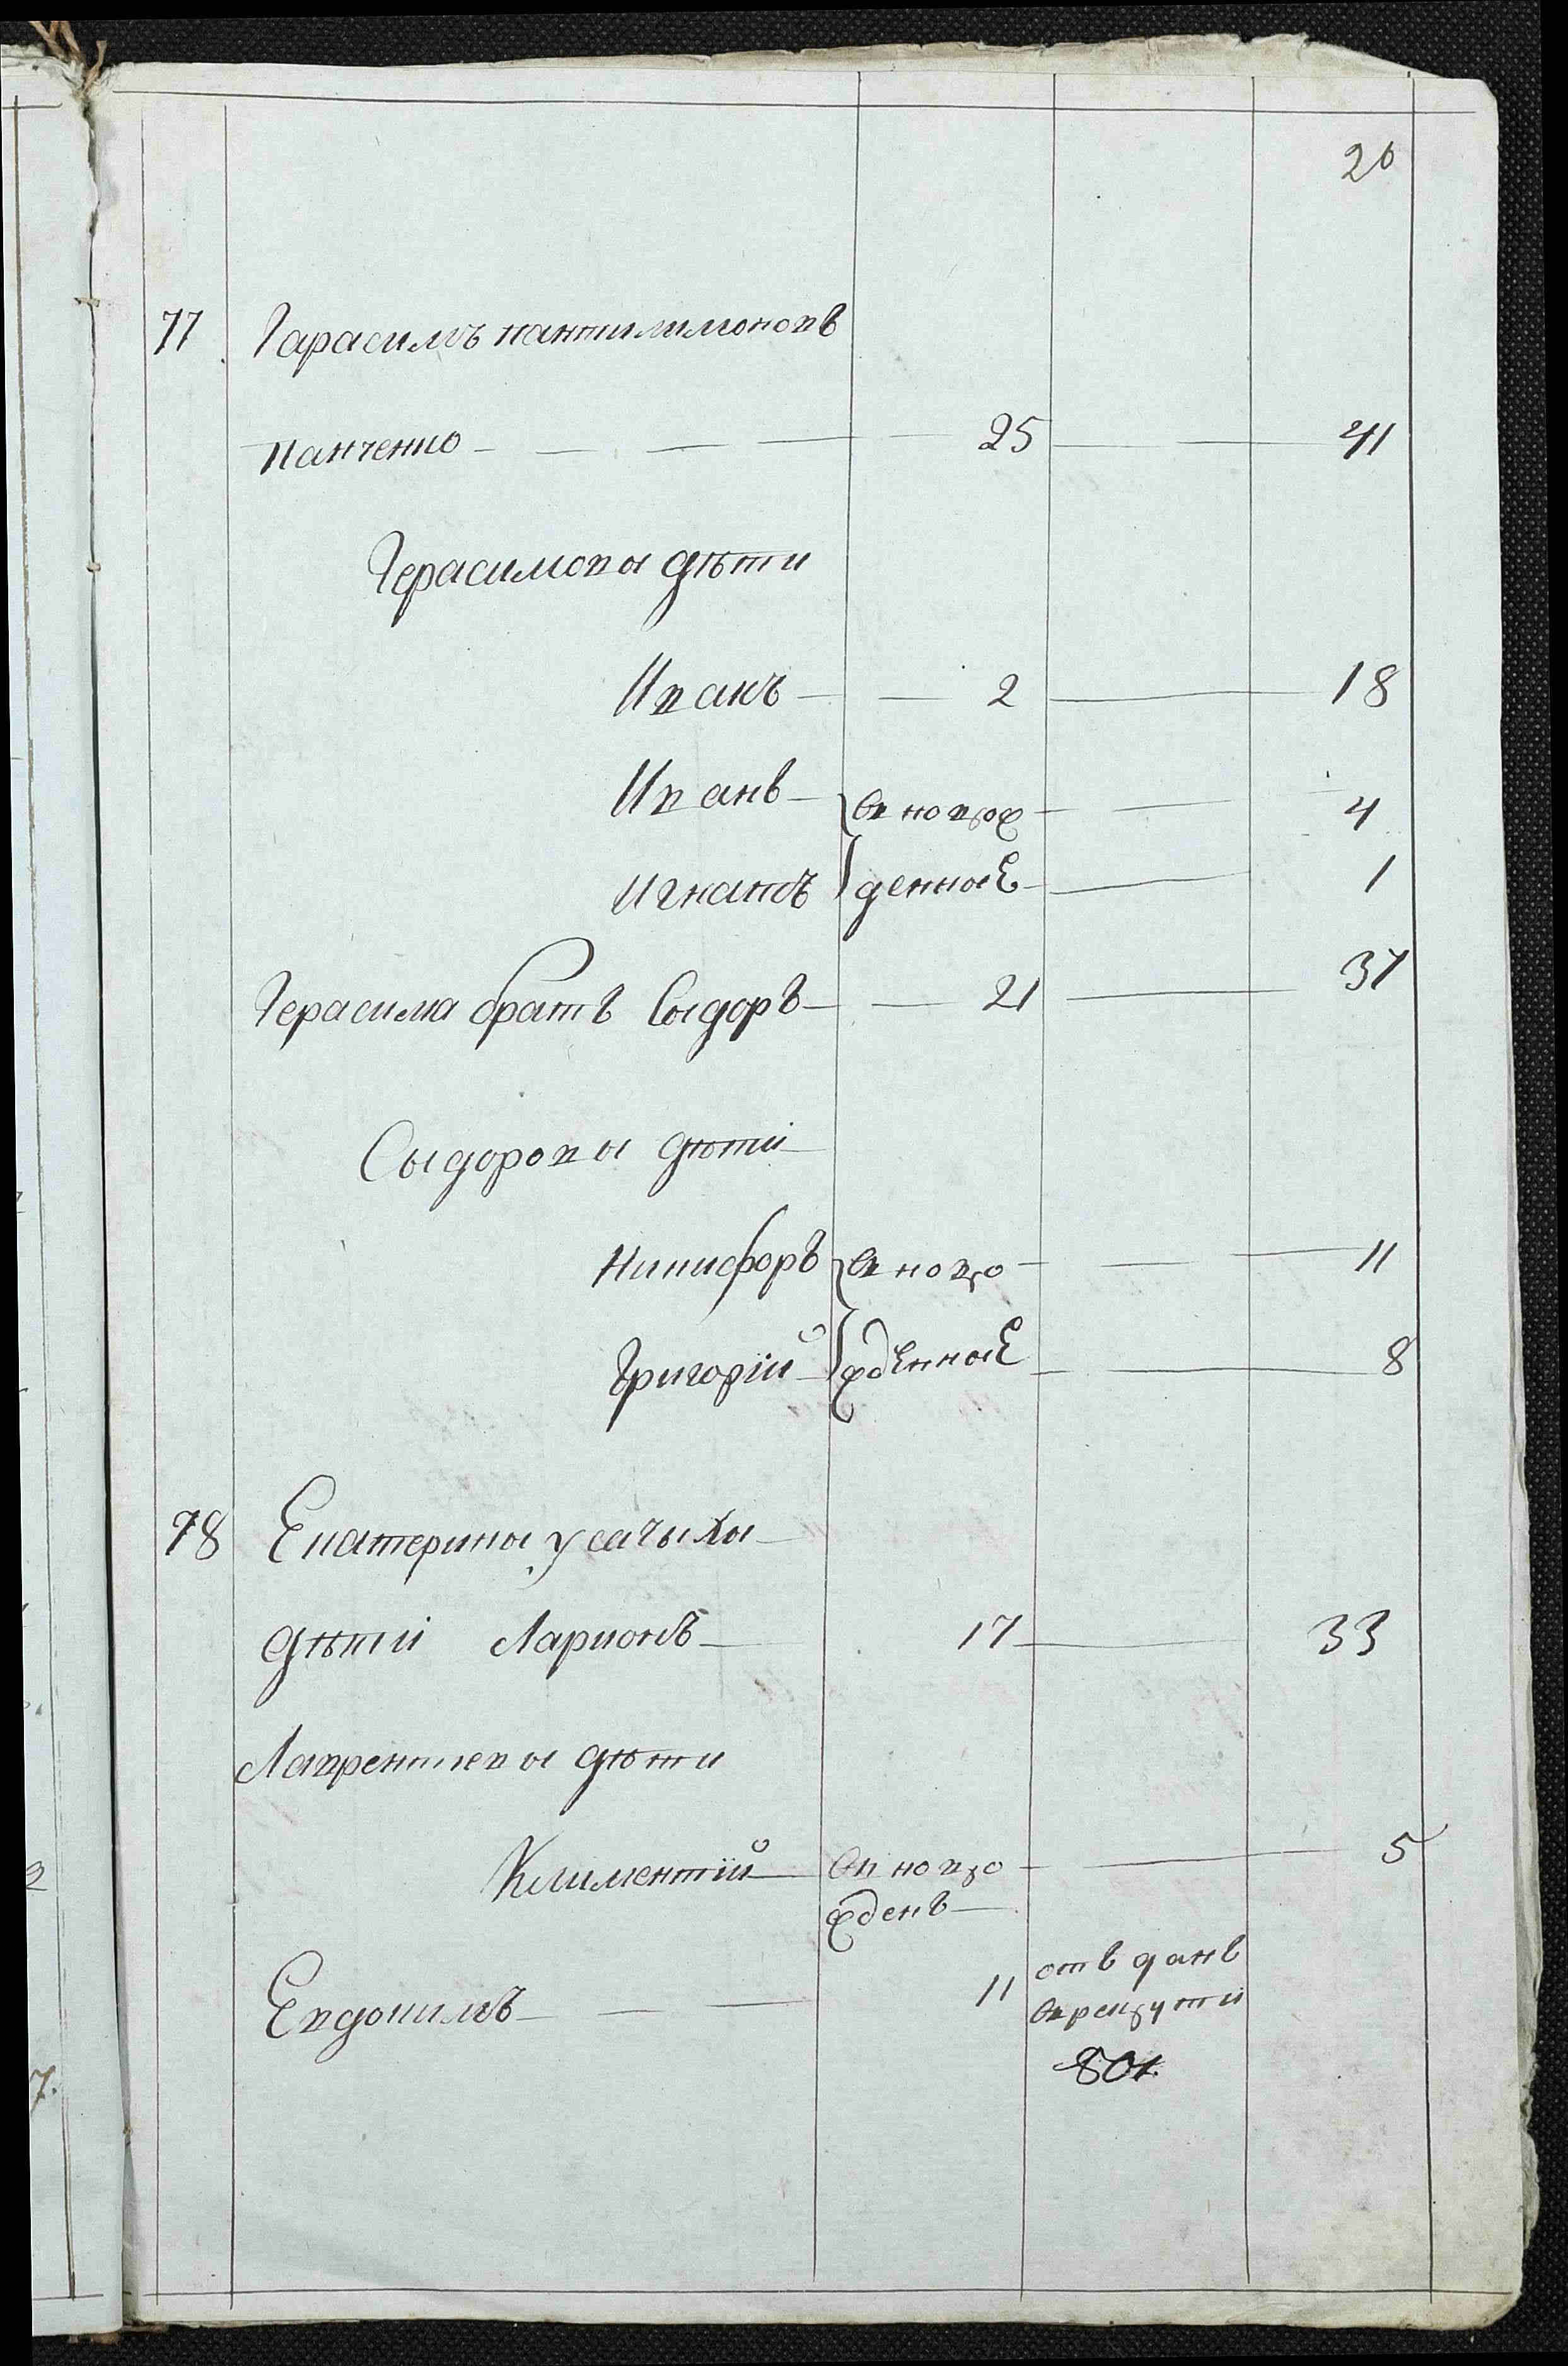 20
77 Гарасимъ пантилимоновъ
Панченко 25 41
Герасимовы дѣти
Иванъ 2 18
Иванъ вноворо 4
Игнатъ жденные 1
Герасима братъ Сыдоръ 21 37
Сыдоровы дѣти
Никифоръ вноворо 11
Григорій жденные 8
78 Екатерины усачыхи
дѣти Ларионъ 17 33
Лаврентіевы дѣти
Климентій вноворо 5
жденъ
Евдокимъ 11 отъданъ
врекруты
801